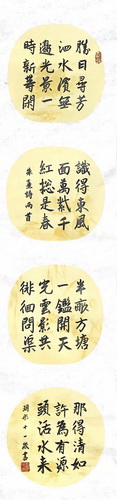 勝日尋芳
泗水濱無
邊光景一
時新等閒
識得東風
面萬紫千
紅総是春
朱熹詩兩首
半畝方塘
一鑑開天
光雲影共
徘徊問渠
那得清如
許為有源
頭活水来